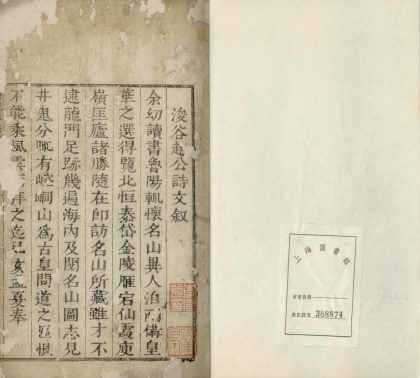 浚谷趙公詩文叙
余幼讀書魯陽輒懷名山異人洎西備皇
華之選得覽北恒泰岱金陵雁宕仙霞庾
嶺匡廬諸勝隨在即訪名山所藏雖才不
逮龍門足跡幾遍海内及閱名山圖志見
井鬼分毗有崆峒山爲古皇問道之 恨
不能乘風 之迄己亥孟夏奉
圖書館
388874